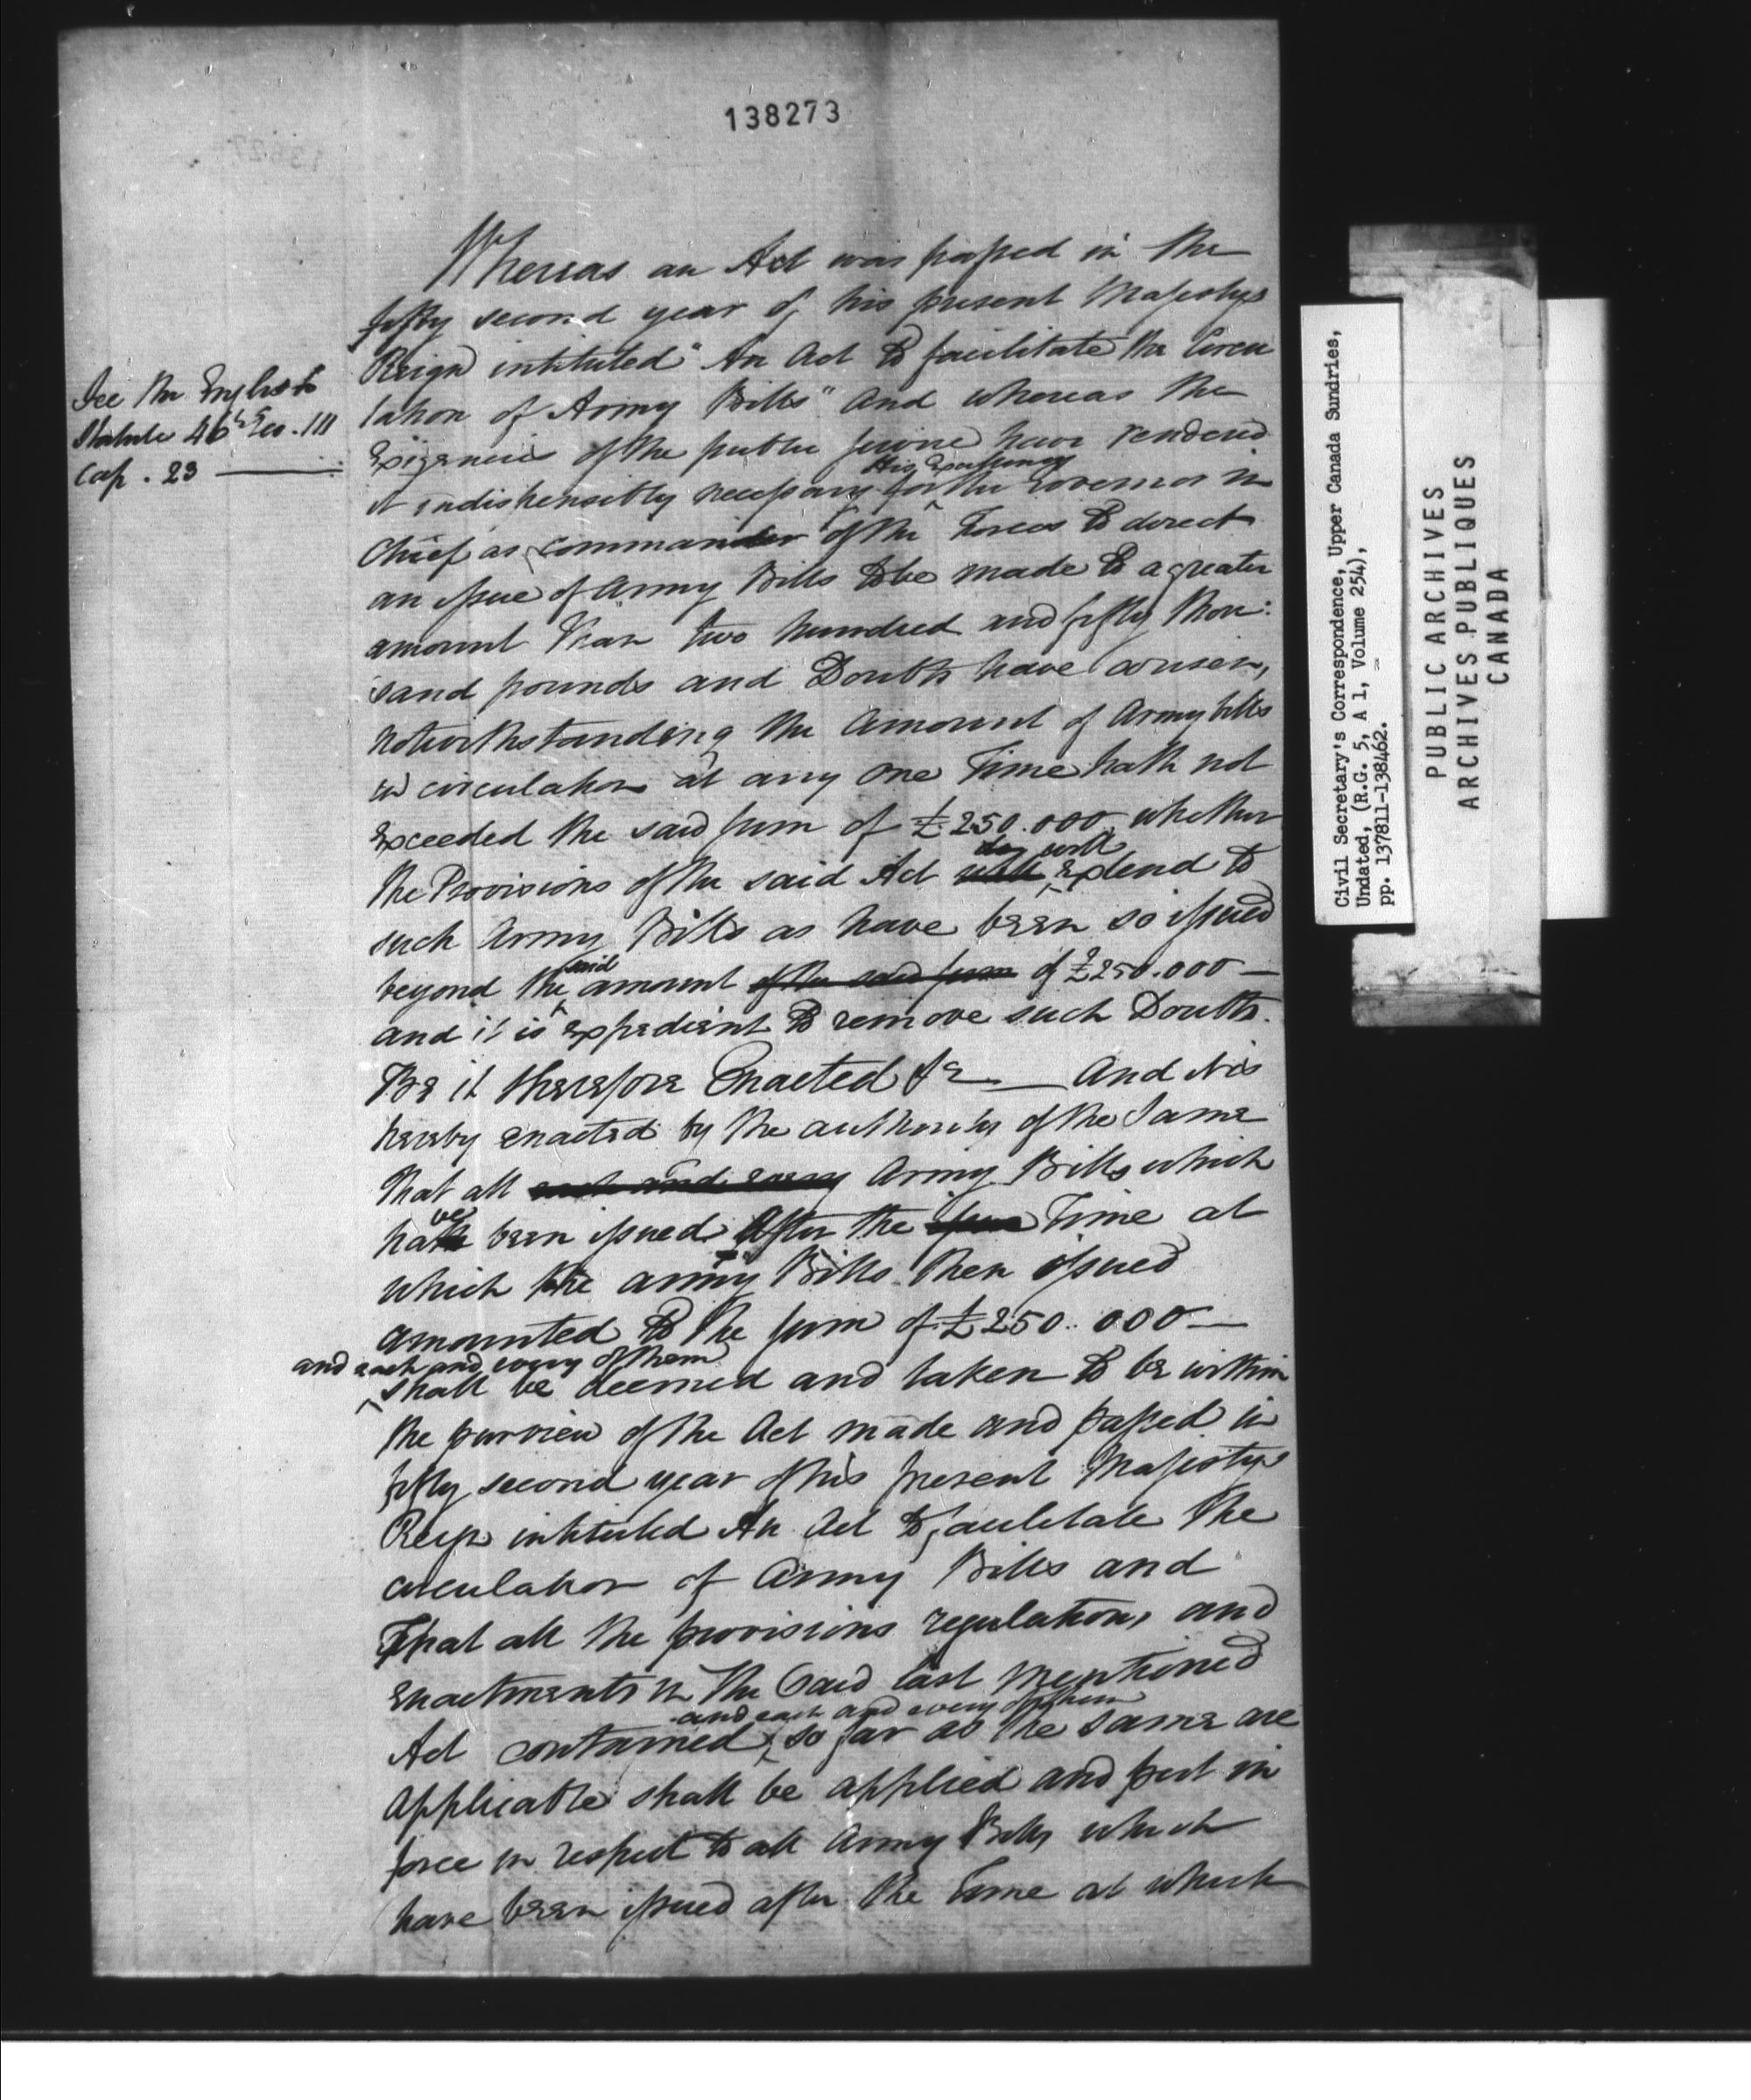 138273
Whereas an Act was passed in the
fifty second year of his present Majestys
Reign intituled "An Act to facilitate the Circu
lation of Army Bills" And whereas the
Exigencies of the public service have rendered
His Excellency
it indispensibly necessary for the Governor in
Chief as commander of the Forces to direct
an issue of Army Bills to be made to a greater
amount than two hundred and fifty thou:
sand pounds and Doubts have arisen,
notwithstanding the amount of Army bills
in circulation at any one Time hath not
Exceeded the said sum of £250.000, whether
do with
the Provisions of the said Act Extend to
such Army Bills as have been so issued
said
beyond the amount of the said sum of £250.000 —
and it is expedient to remove such Doubts.
Be it therefore Enacted &c — And it is
hereby enacted by the authority of the Same
that all each and every Army Bills which
ve
hath been issued After the issue Time at
which the army Bills then issued
amounted to the sum of £250..000 —
and each and every of them
shall be deemed and taken to be within
the purview of the Act made and passed in
fifty second year of his present Majestys
Reign intituled An Act to facilitate the
circulation of Army Bills and
That all the provisions regulations and
enactments in the said last mentioned
and each and every of them
Act contained, so far as the same are
applicable shall be applied and put in
force in respect to all Army Bills which
have been issued after the Time at which
See the English
Statute 46th Geo. III
Cap. 23 —
Civil Secretary's Correspondence, Upper Canada Sundries,
Undated, (R.G. 5, A 1, Volume 254),
pp. 137811-138462.
PUBLIC ARCHIVES
ARCHIVES PUBLIQUES
CANADA